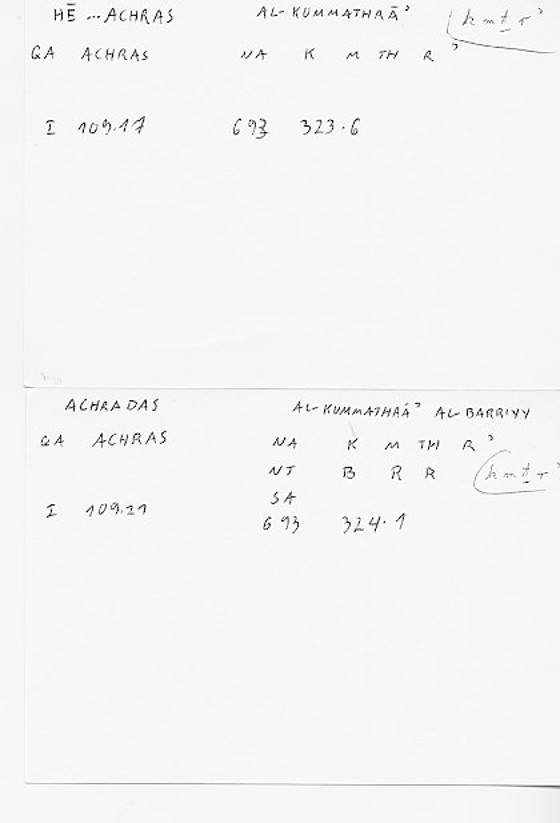 HĒ ... ACHRAS AL-KUMMATHRĀʾ (kmṯrʾ
QA ACHRAS NA K M TH R ʾ
I 109.17 693 323.6
ACHRADAS AL-KUMMATHRĀʾ AL-BARRIYY
QA ACHRAS NA K M TH R ʾ
NJ B R R (kmṯrʾ
SA
I 109.21 693 324.1